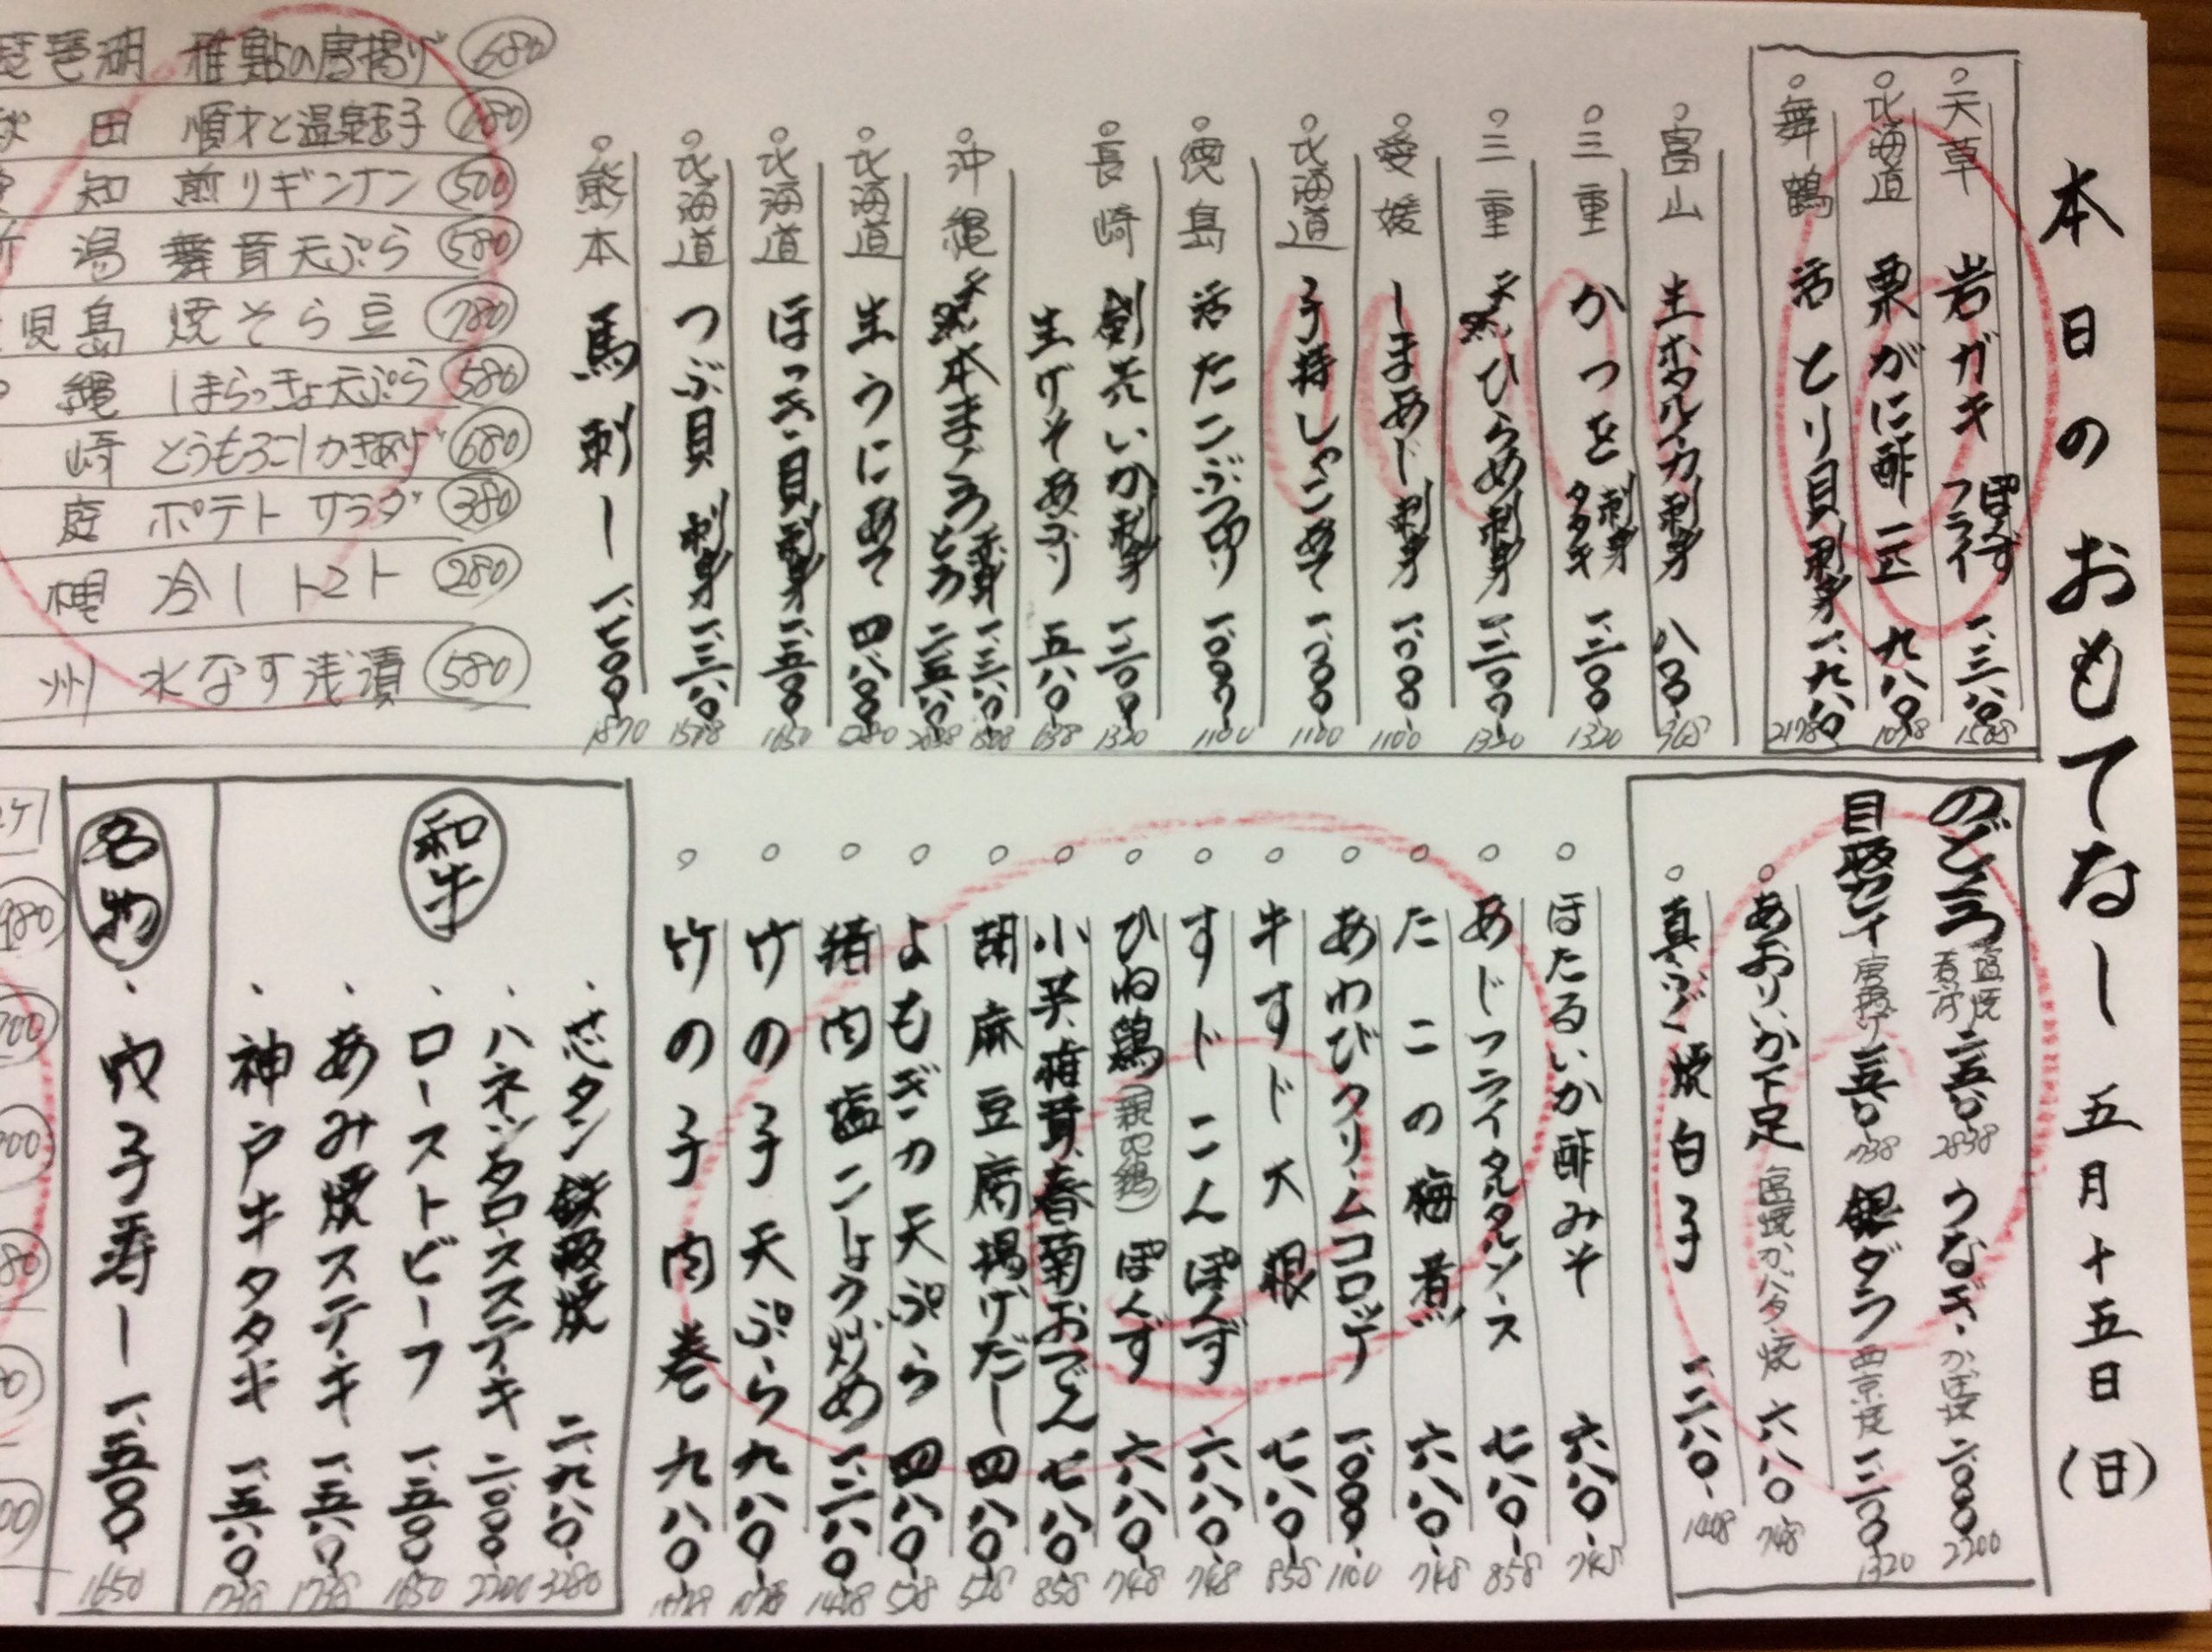 本日のおもてなし 五月十五日(日)
天草 岩ガキ ぽんず フライ 一、三八〇 1518
北海道 栗がに酢 一匹 九八〇 1078
舞鶴 活とり貝 刺身 一、九八〇 2178
富山 生ホタルイカ刺身 八八〇 968
三重 かつを 刺身 タタキ 一、二〇〇 1320
三重 天然ひらめ刺身 一、二〇〇 1320
愛媛 しまあじ刺身 一、〇〇〇 1100
北海道 子持しゃこあて 一、〇〇〇 1100
徳島 活たこぶつ切り 一、〇〇〇 1100
長崎 剣先いか刺身 一、二〇〇 1320
生げそあぶり 五八〇 638
沖縄 天然本まぐろ 赤身 一、三八〇 とろ 二、五八〇
北海道 生うにあて 四、八〇〇 5280
北海道 ほっき貝刺身 一、五〇〇 1650
北海道 つぶ貝 刺身 一、三八〇 1518
熊本 馬刺し 一、七〇〇 1870
琵琶湖 稚鮎の唐揚げ 680
田 順才と温泉玉子
知 煎リギンナン 500
潟 舞茸天ぷら 580
児島 焼そら豆 780
縄 しまらっきょ天ぷら 580
崎 とうもろこしかきあげ 680
庭 ポテトサラダ 380
冷しトマト 280
州 水なす浅漬 580
のどぐろ 塩焼 煮付 二、五八〇 2838 うなぎ かば焼 二、〇〇〇 2200
目板カレイ 唐揚げ 銀ダラ 西京焼 一、二〇〇 1320
あおりいか下足 塩焼かバター焼 六八〇 748
真ふぐ焼白子 一、二八〇 1408
ほたるいか酢みそ 六八〇 748
あじフライタルタルソース 七八〇 858
たこの梅煮 六八〇 748
あわびクリームコロッケ 一、〇〇〇 1100
牛すじ大根 七八〇 858
すじこんぽんず 六八〇 748
ひね鶏(親地鶏)ぽんず 六八〇 748
小芋、椎茸、春菊おでん 七八〇 858
胡麻豆腐揚げだし 四八〇 528
よもぎ力天ぷら 四八〇 528
猪肉塩こしょう炒め 一、二八〇 1408
竹の子天ぷら 九八〇 1078
竹の子肉巻 九八〇 1078
和牛
芯タン鉄板焼 二、九八〇 3280
ハネシタロースステーキ 二、〇〇〇 2200
ローストビーフ 一、五〇〇 1650
あみ焼ステーキ 一、五八〇 1738
神戸牛タタキ 一、五八〇 1738
名物
穴子寿し 一、五〇〇 1650